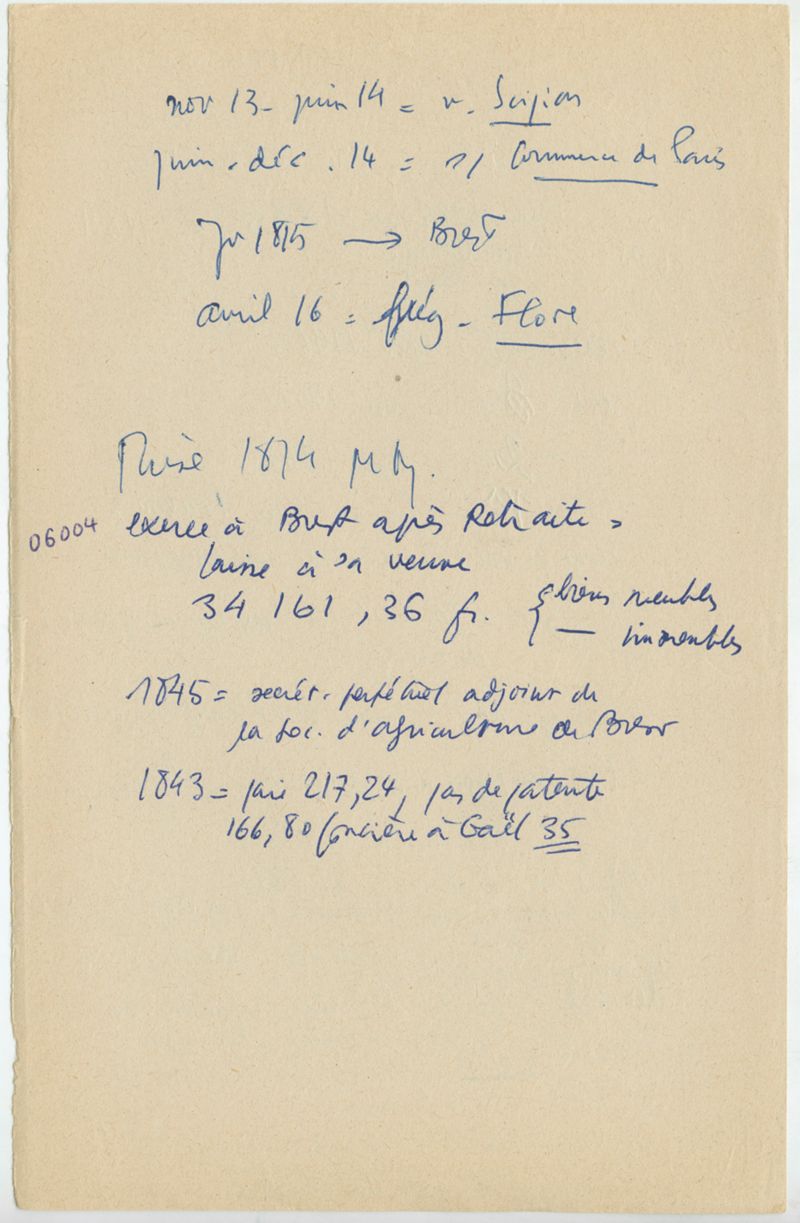 nov 13 - juin 14 = v. Scipion
juin - déc. 14 = v/ Commerce de Paris
Jv 1815 → Brest
avril 16 = frég - Flore
1814
06004 exerce à Brest après Retraite =
laisse à sa veuve
34 161,36 fr. { biens meubles
— immeubles
1845 = secrét. perpétuel adjoint de
la Soc. d'agriculture de Brest
1843 = paie 217,24, pas de patente
166,80 foncière à Gaël 35